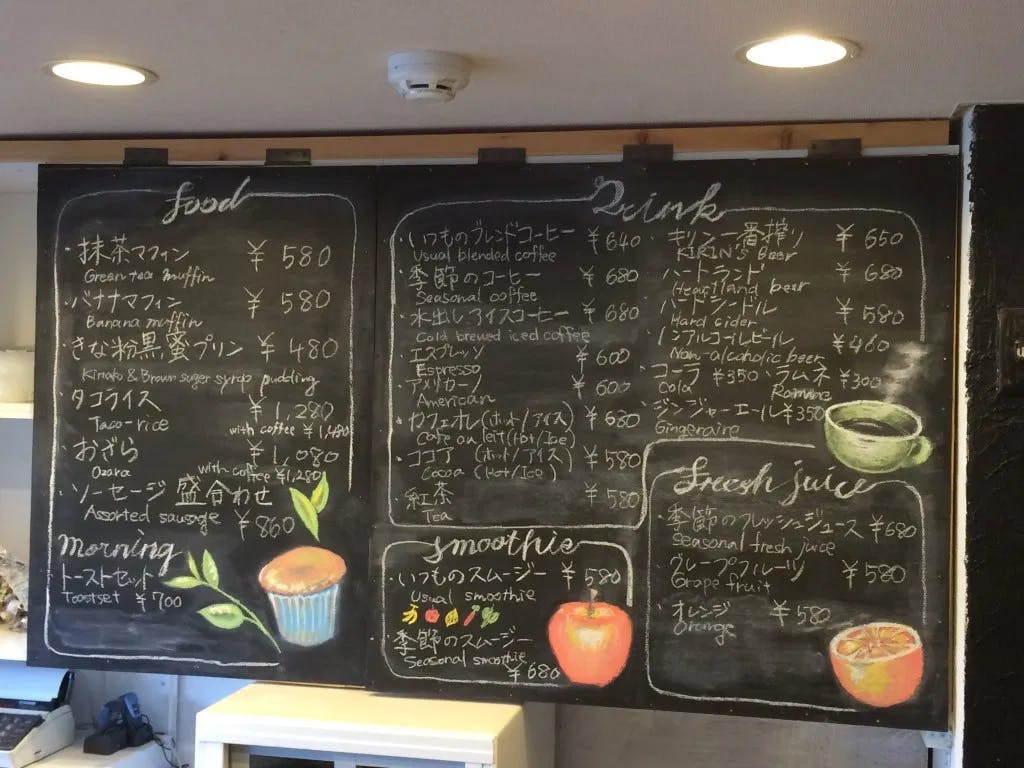 food
・抹茶マフィン ¥580
Green tea muffin
・バナナマフィン ¥580
Banana muffin
・きな粉黒蜜プリン ¥480
Kinako & Brown suger syrop pudding
・タコライス ¥1,280
Taco-rice with coffee ¥1,480
・おざら ¥1,080
Ozara with coffee ¥1,280
・ソーセージ盛合わせ
Assorted sausage ¥860
morning
トーストセット
Toastset ¥700
Drink
・いつものブレンドコーヒー ¥640
Usual blended coffee
・季節のコーヒー ¥680
Seasonal coffee
・水出しアイスコーヒー ¥680
Cold brewed iced coffee
・エスプレッソ ¥600
Espresso
・アメリカーノ ¥600
American
・カフェオレ(ホット/アイス) ¥680
Cafe au lait (Hot/Ice)
・ココア (ホット/アイス) ¥580
Cocoa (Hot/Ice)
・紅茶 ¥580
Tea
・キリン一番搾り ¥650
KIRIN'S Beer
・ハートランド ¥680
Heartland beer
・ハードシードル ¥580
Hard cider
・ノンアルコールビール ¥460
Non-alcoholic beer
・コーラ ¥350 ・ラムネ ¥300
Cola Ramune
・ジンジャーエール ¥350
smoothie
・いつものスムージー ¥580
Usual smoothie
・季節のスムージー
Seasonal smoothie
¥680
Freesh juice
・季節のフレッシュジュース ¥680
Seasonal fresh juice
・グレープフルーツ ¥580
Grape fruit
・オレンジ ¥580
Orange